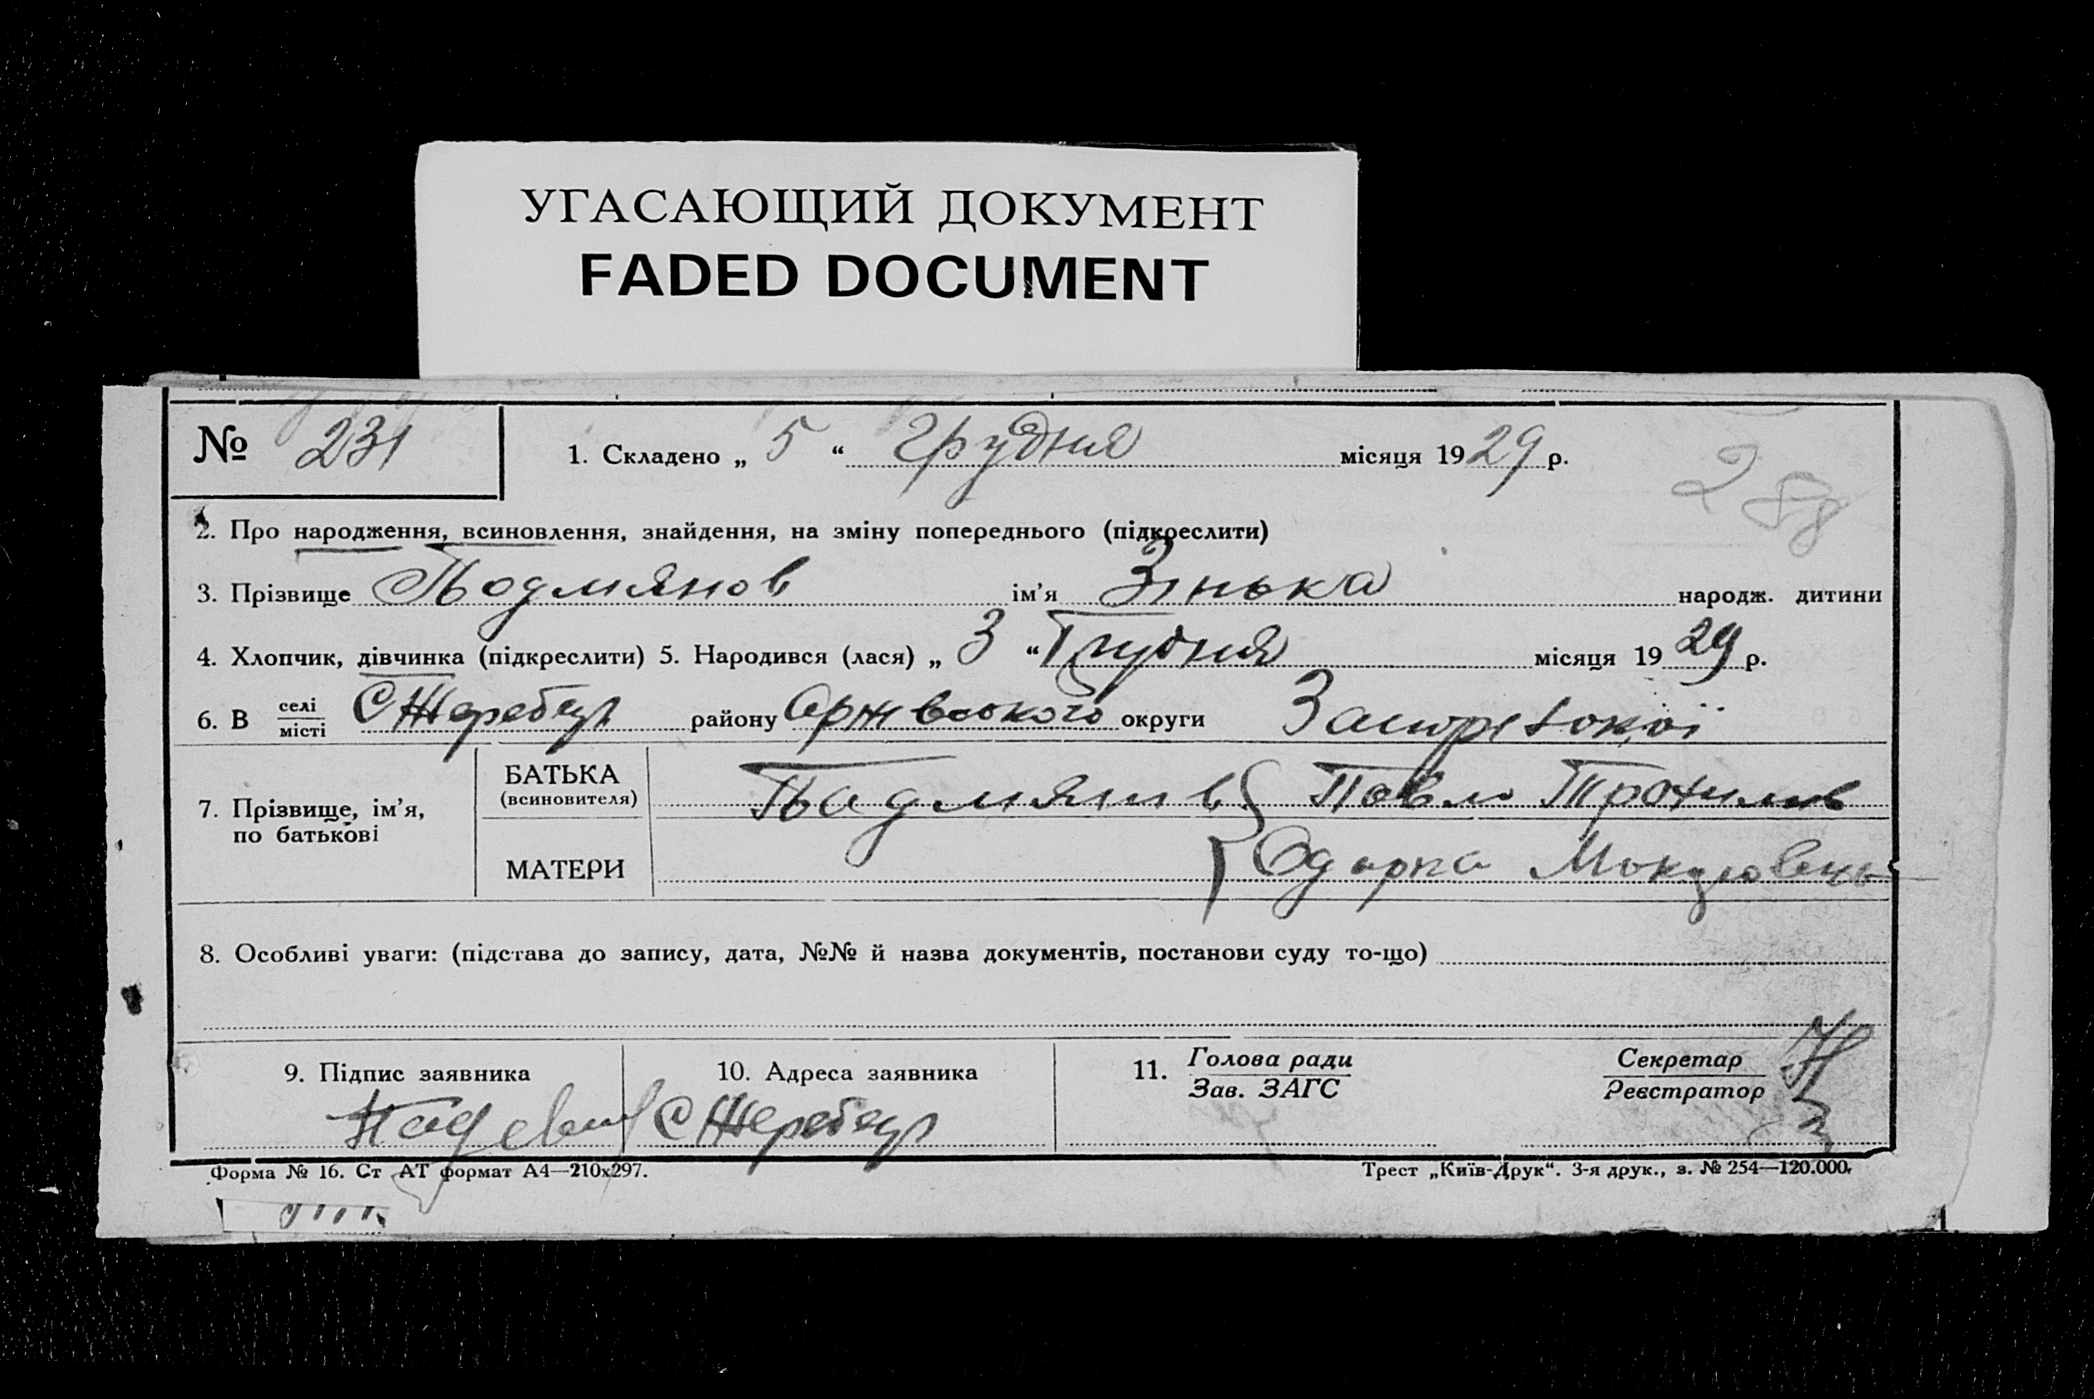 УГАСАЮЩИЙ ДОКУМЕНТ
FADED DOCUMENT
№ 231
1. Складено „ 5 “ Грудня місяця 1929 р.
288
2. Про народження, всиновлення, знайдення, на зміну попереднього (підкреслити)
3. Прізвище ім’я Зінька народж. дитини
4. Хлопчик, дівчинка (підкреслити) 5. Народився (лася) „ 3 “ Грудня місяця 1929 р.
6. В селі/місті С Жеребець району округи
7. Прізвище, ім’я, по батькові
БАТЬКА (всиновителя) Павло
МАТЕРИ Одарка
8. Особливі уваги: (підстава до запису, дата, №№ й назва документів, постанови суду то-що)
9. Підпис заявника
10. Адреса заявника
С Жеребець
11. Голова ради
Зав. ЗАГС
Секретар
Реєстратор
Форма № 16. Ст АТ формат А4—210x297.
Трест „Київ-Друк“. 3-я друк., з. № 254—120.000.